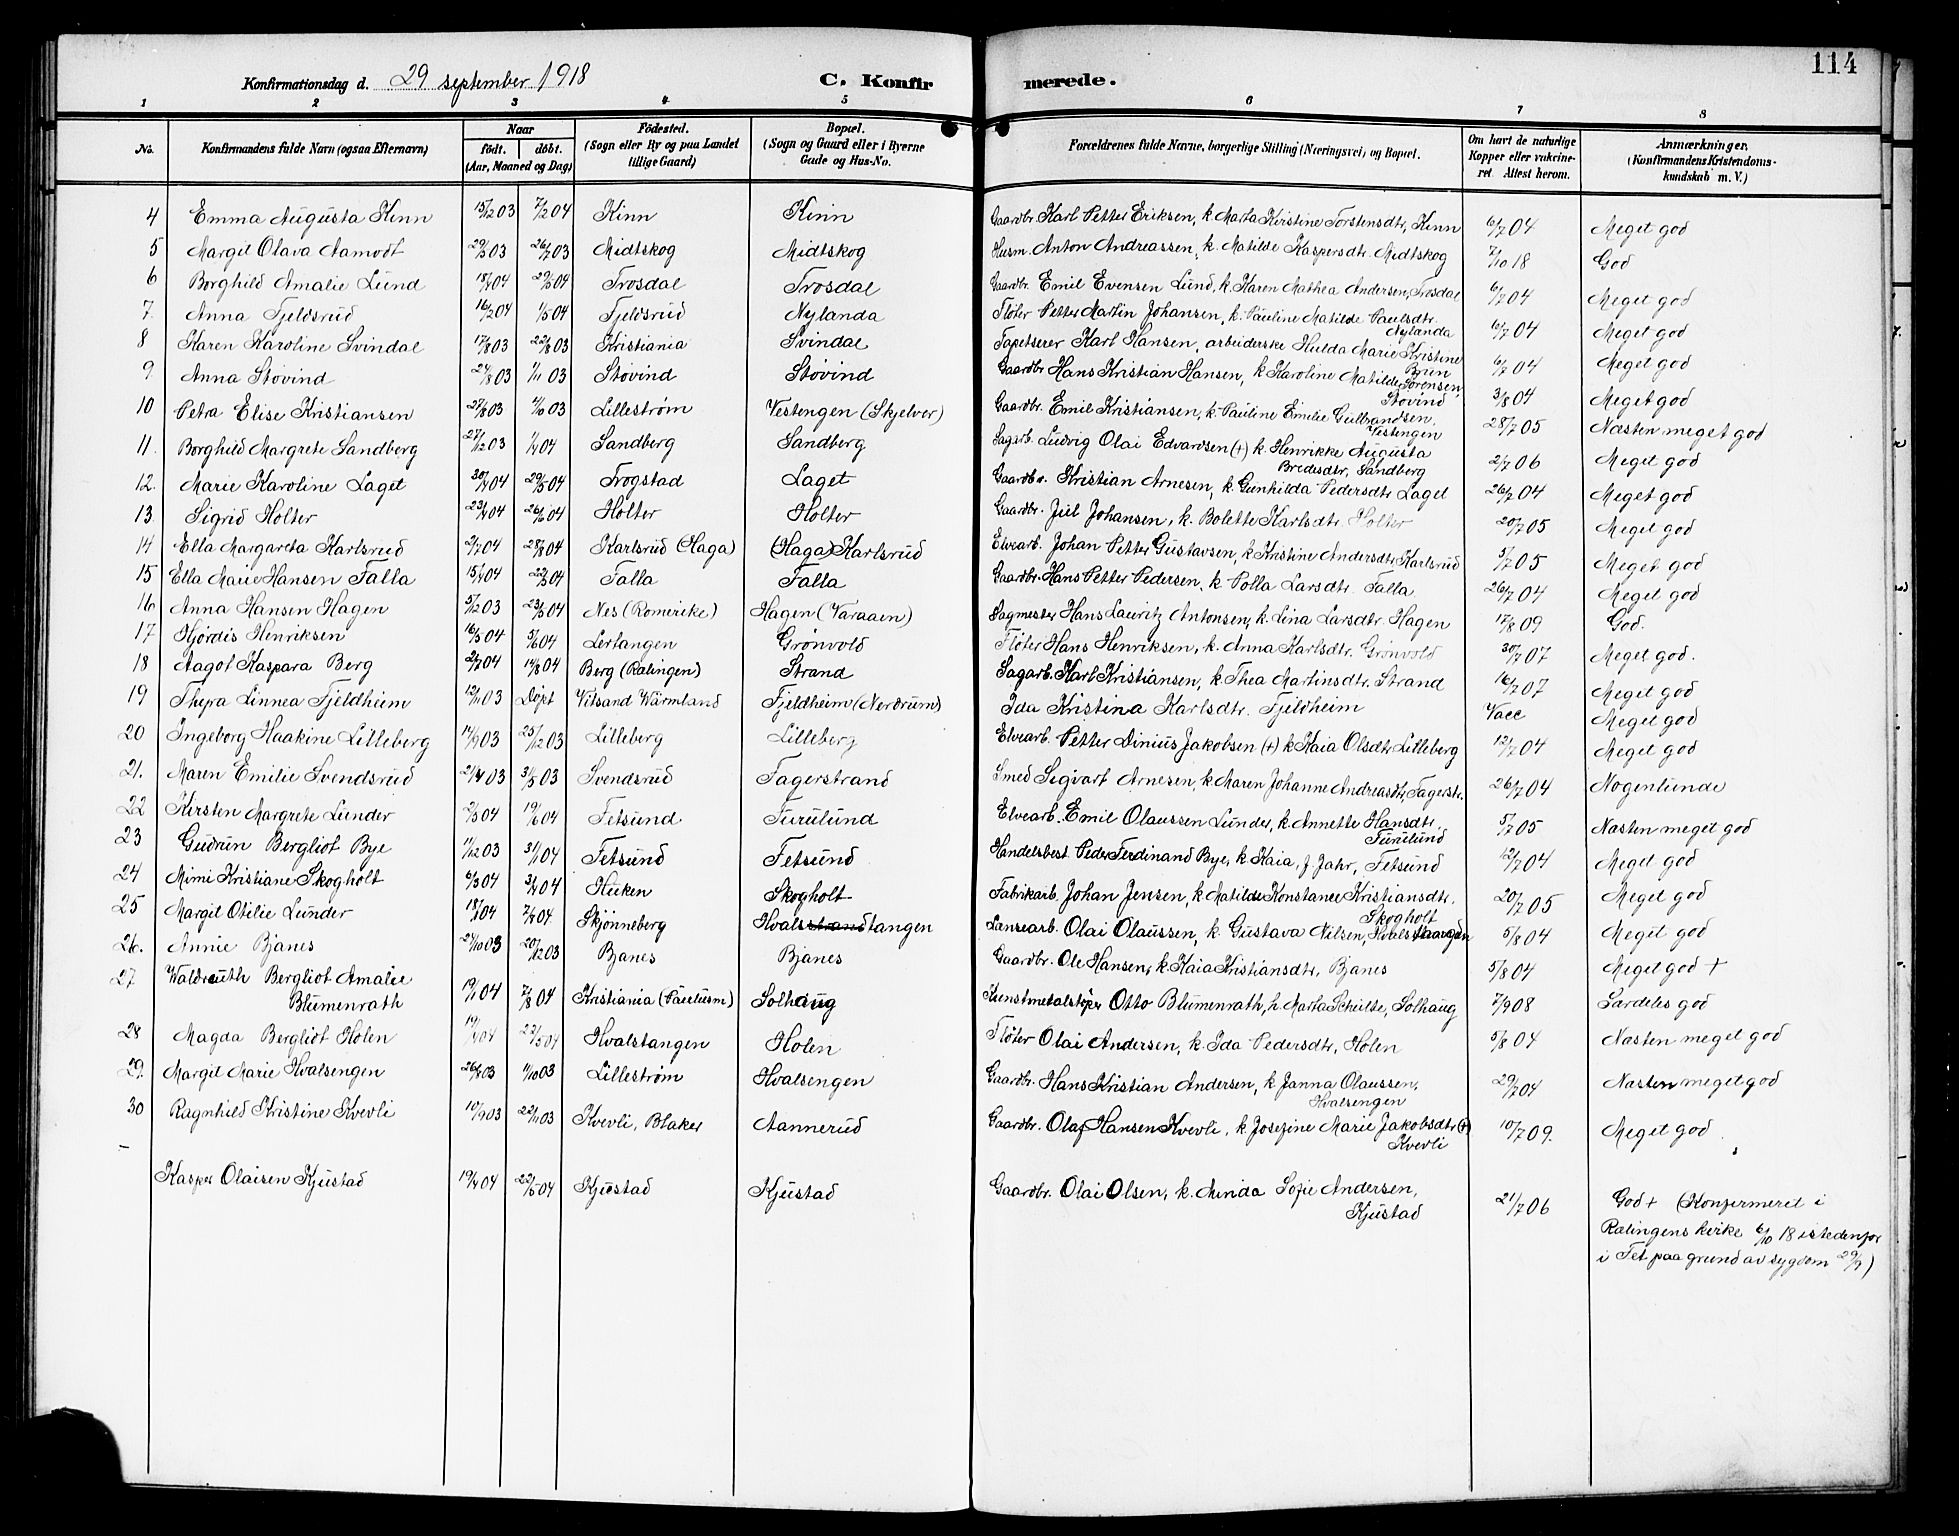 114
Konfirmationsdag d. 29 september 1918 C. Konfirmerede.
1 2 3 4 5 6 7 8
No. Konfirmandens fulde Navn (ogsaa Efternavn) Naar født. døbt. (Aar, Maaned og Dag) Fødested. (Sogn eller By og paa Landet tillige Gaard) Bopæl. (Sogn og Gaard eller i Byerne Gade og Hus-No. Forældrenes fulde Navne, borgerlige Stilling (Næringsvei) og Bopæl. Om havt de naturlige Kopper eller vakcineret. Attest herom. Anmærkninger. (Konfirmandens Kristendomskundskab m. V.)
4 Emma Augusta Kinn 15/12 03 7/2 04 Kinn Kinn Gaardbr. Karl Petter Eriksen, k. Marta Kristine Torstensdtr, Kinn 6/7 04 Meget god
5 Margit Olava Aamodt 29/3 03 26/7 03 Midtskog Midtskog Husm. Anton Andreassen, k. Matilde Kaspersdtr. Midtskog 7/10 18 God
6 Borghild Amalie Lund 18/4 04 29/5 04 Trosdal Trosdal Gaardbr. Emil Evensen Lund, k. Karen Mathea Andersen, Trosdal 6/7 04 Meget god
7. Anna Fjeldsrud 16/2 04 1/5 04 Fjeldsrud Nylanda Fløter Petter Martin Johansen, k. Pauline Matilde Paulsdtr. Nylanda 6/7 04 Meget god
8 Karen Karoline Svindal 17/8 03 22/8 03 Kristiania Svindal Tapetserer Karl Hansen, arbeiderske Hulda Marie Kristine Brun 6/7 04 Meget god
9. Anna Støvind 24/8 03 1/11 03 Støvind Støvind Gaardbr. Hans Kristian Hansen, k. Karoline Matilde Sørensen, Støvind 3/8 04 Meget god
10 Petra Elise Kristiansen 27/8 03 4/10 03 Lillestrøm Vestengen (Skjelver) Gaardbr. Emil Kristiansen, k. Pauline Emilie Gulbrandsen, Vestengen 28/7 05 Næsten meget god
11. Borghild Margrete Sandberg 27/12 03 1/4 04 Sandberg Sandberg Sagarb. Ludvig Olai Edvardsen (+) k. Henrikke Augusta Bredesdtr, Sandberg 2/7 06 Meget god
12. Marie Karoline Laget 30/4 04 29/5 04 Trøgstad Laget Gaardbr. Kristian Arnesen, k. Gunhilda Pedersdtr Laget 26/7 04 Meget god
13. Sigrid Holter 23/4 04 26/6 04 Holter Holter Gaardbr. Juel Johansen, k. Bolette Karlsdtr. Holter 20/7 05 Meget god
14 Ella Margareta Karlsrud 2/7 04 28/8 04 Karlsrud (Haga) (Haga) Karlsrud Elvearb. Johan Petter Gustavsen, k. Kristine Andersdtr, Karlsrud 5/7 05 Meget god
15 Ella Marie Hansen Falla 15/4 04 22/5 04 Falla Falla Gaardbr. Hans Petter Pedersen, k. Polla Larsdtr. Falla 26/7 04 Meget god
16 Anna Hansen Hagen 5/12 03 23/5 04 Nes (Romerike) Hagen (Varaaen) Sagmester Hans Lauritz Antonsen, k. Lina Larsdtr. Hagen 17/8 09 God.
17 Hjørdis Henriksen 16/3 04 5/6 04 Lertangen Grønvold Fløter Hans Henriksen, k. Anna Karlsdtr. Grønvold 30/7 07 Meget god.
18 Aagot Kaspara Berg 2/7 04 14/8 04 Berg (Rælingen) Strand Sagarb. Karl Kristiansen, k. Thea Martinsdtr. Strand 16/7 07 Meget god
19 Thyra Linnea Fjeldheim 12/11 03 Døpt Vitsand Wärmland Fjeldheim (Nerdrum) Ida Kristina Karlsdtr. Fjeldheim Vacc Meget god
20 Ingeborg Haakine Lilleberg 14/9 03 25/12 03 Lilleberg Lilleberg Elvearb. Petter Dinius Jakobsen (+) k Kaia Olsdtr Lilleberg 12/7 04 Meget god
21. Maren Emilie Svendsrud 21/4 03 31/5 03 Svendsrud Fagerstrand Smed Sigvart Arnesen, k Maren Johanne Andreasdtr, Fagerstr. 26/7 04 Nogenlunde
22 Kirsten Margrete Lunder 2/3 04 19/6 04 Fetsund Furulund Elvearb. Emil Olaussen Lunder, k. Annette Hansdtr, Furulund 5/7 05 Næsten meget god
23 Gudrun Bergliot Bye 11/12 03 31/1 04 Fetsund Fetsund Handelsbest. Peder Ferdinand Bye, k. Kaia, f. Jahr, Fetsund 12/7 04 Meget god
24 Mimi Kristiane Skogholt 6/3 04 3/4 04 Huken Skogholt Fabrikarb. Johan Jensen, k. Matilde Konstance Kristiansdtr. Skogholt 20/7 05 Meget god
25 Margit Otilie Lunder 18/1 04 7/4 04 Skjønneberg Hvalstangen Lænsearb. Olai Olaussen, k. Gustava Nilsen, Hvalstangen 5/8 04 Meget god
26. Annie Bjanes 21/10 03 20/12 03 Bjanes Bjanes Gaardbr. Ole Hansen, k. Kaia Kristiansdtr, Bjanes 5/8 04 Meget god +
27 Waldrauth Bergliot Amalie Blumenrath 19/1 04 7/8 04 Kristiania (Paulusm) Solhaug Kunstmetalstøper Otto Blumenrath, k. Marta Schulte, Solhaug 7/9 08 Særdeles god
28 Magda Bergliot Holen 19/4 04 22/5 04 Hvalstangen Holen Fløter Olai Andersen, k. Ida Pedersdtr, Holen 5/8 04 Næsten meget god
29. Margit Marie Hvalsengen 26/8 03 11/10 03 Lillestrøm Hvalsengen Gaardbr. Hans Kristian Andersen, k Janna Olaussen, Hvalsengen 29/7 04 Næsten meget god
30 Ragnhild Kristine Kvevli 10/9 03 22/11 03 Kvevli, Blaker Aannerud Gaardbr. Olaf Hansen Kvevli, k Josefine Marie Jakobsdtr (+) Kvevli 10/7 09. Meget god
Kasper Olaisen Kjustad 19/4 04 22/5 04 Kjustad Kjustad Gaardbr. Olai Olsen, k. Minda Sofie Andersen, Kjustad 21/7 06 God + (Konfirmeret i
Rælingens kirke 6/10 18 istedenfor
i Fet paa grund av sygdom 29/9)